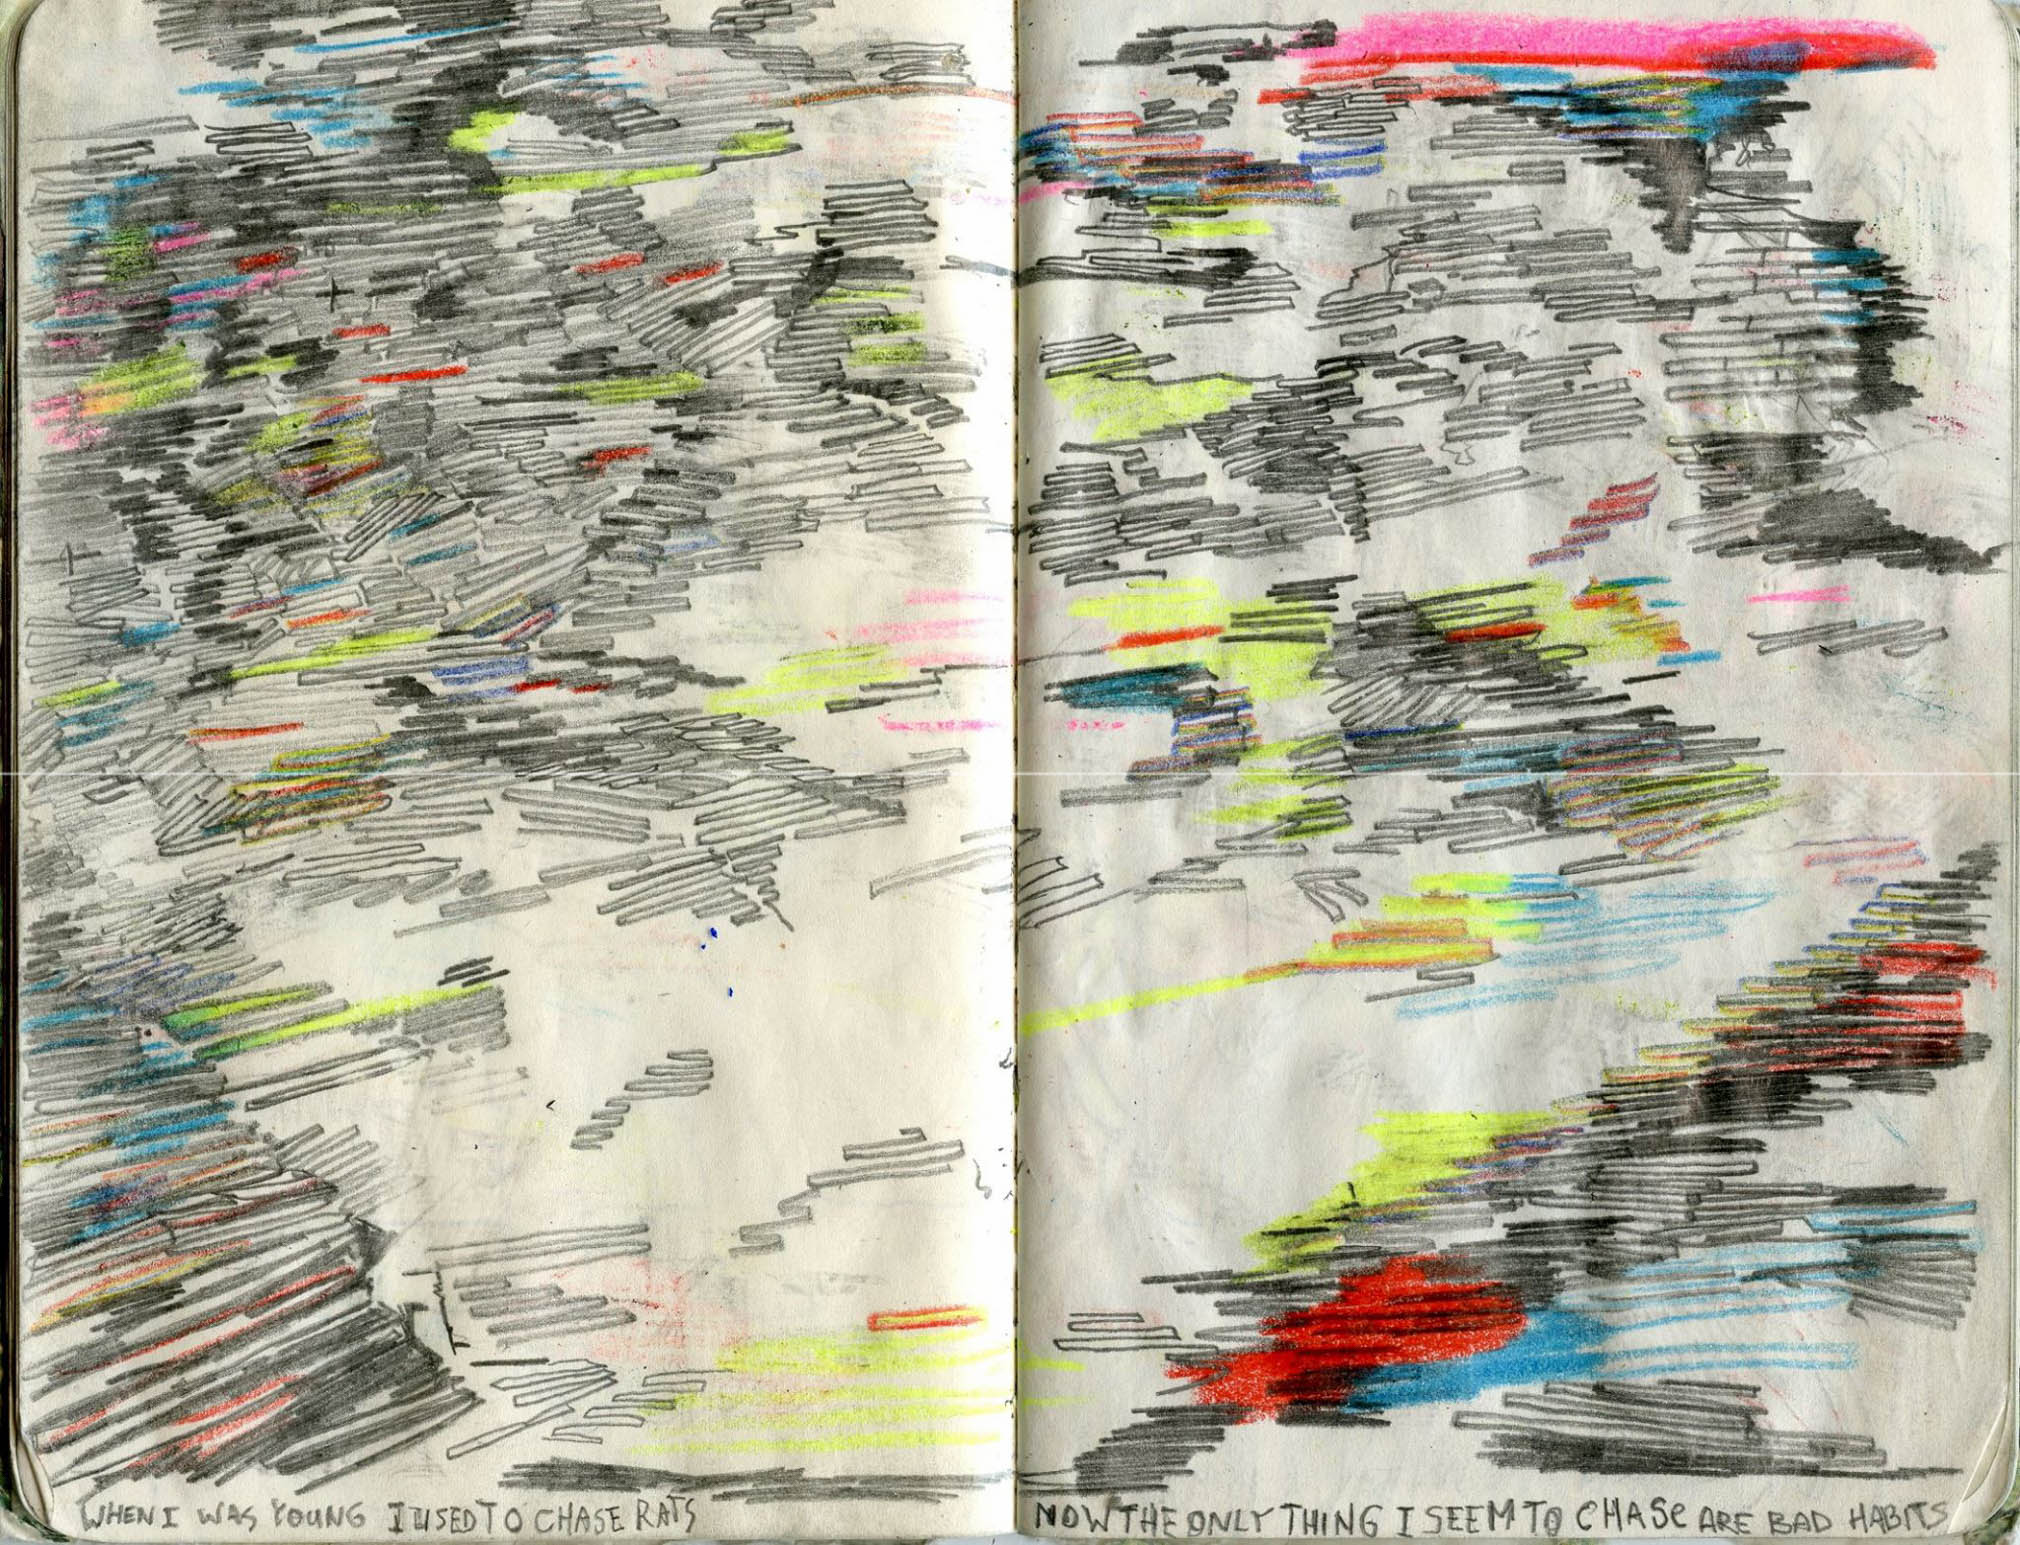 WHEN I WAS YOUNG I USED TO CHASE RATS
NOW THE ONLY THING I SEEM TO CHASE ARE BAD HABITS